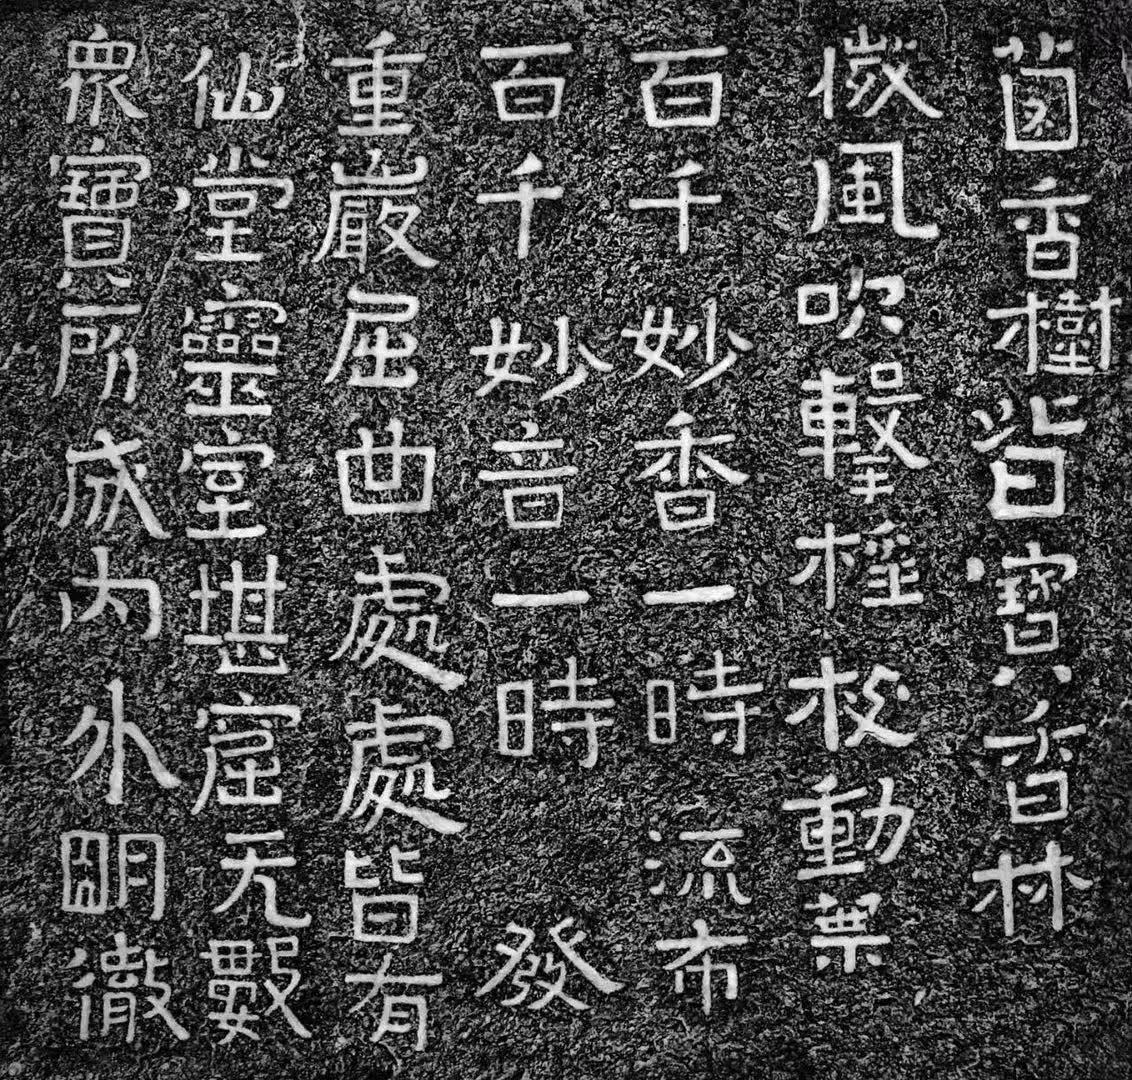 菌香樹皆寶香林
微風吹擊搖枝動葉
百千妙香一時流布
百千妙音一時發
重巖屈曲處處皆有
仙堂靈室堪窟无數
眾寶所成內外明徹